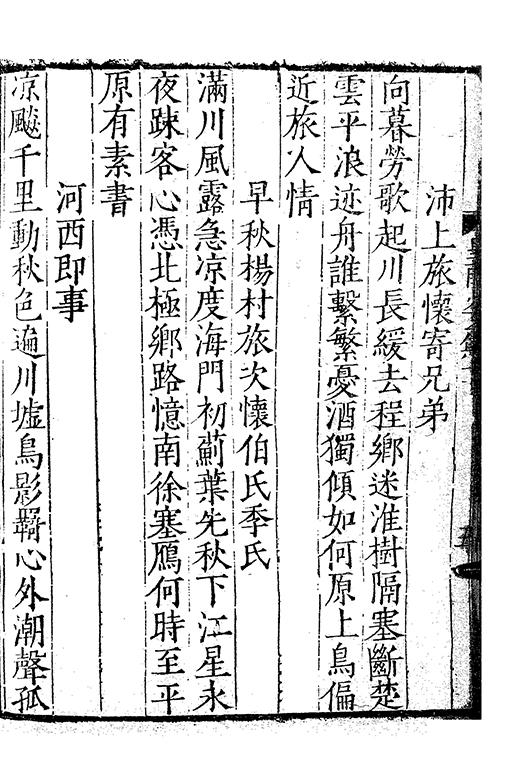 沛上旅懷寄兄弟
向暮勞歌起川長緩去程鄉迷淮樹隔塞斷楚
雲平浪迹舟誰繫繁憂酒獨傾如何原上鳥偏
近旅人情
早秋楊村旅次懷伯氏季氏
滿川風露急凉度海門初薊葉先秋下江星永
夜踈客心憑北極鄉路憶南徐塞鴈何時至平
原有素書
河西即事
凉飈千里動秋色遍川墟鳥影羇心外潮聲孤